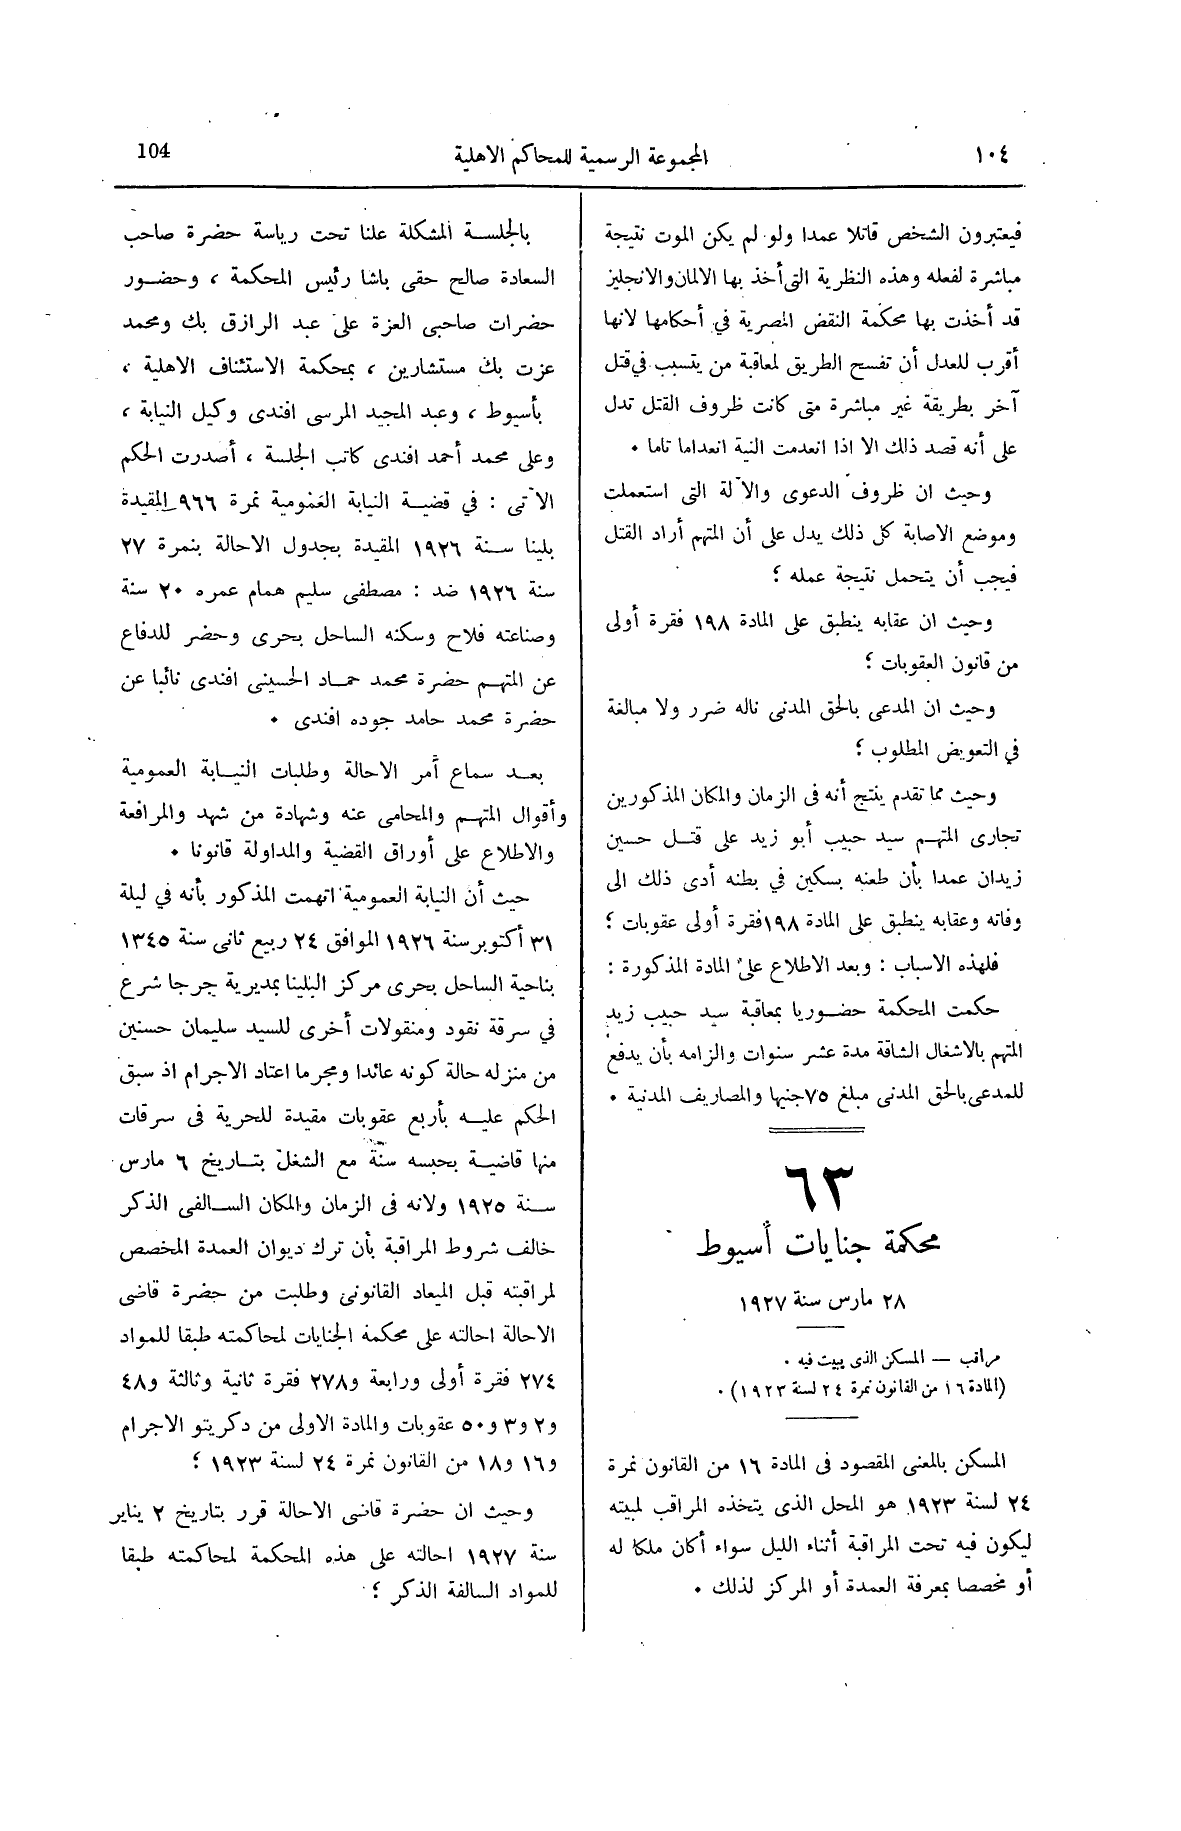 ١٠٤
المجموعة الرسمية للمحاكم الاهلية
104
فيعتبرون الشخص قاتلا عمدا ولو لم يكن الموت نتيجة
مباشرة لفعله وهذه النظرية التى أخذ بها الالمان والانجليز
قد أخذت بها محكمة النقض المصرية في أحكامها لانها
أقرب للعدل أن تفسح الطريق لمعاقبة من يتسبب في قتل
آخر بطريقة غير مباشرة متى كانت ظروف القتل تدل
على أنه قصد ذلك الا اذا انعدمت النية انعداما تاما ٠
وحيث ان ظروف الدعوى والآلة التى استعملت
وموضع الاصابة كل ذلك يدل على أن المتهم أراد القتل
فيجب أن يتحمل نتيجة عمله ؟
وحيث ان عقابه ينطبق على المادة ١٩٨ فقرة أولى
من قانون العقوبات ؟
وحيث ان المدعى بالحق المدنى ناله ضرر ولا مبالغة
في التعويض المطلوب ؟
وحيث مما تقدم ينتج أنه فى الزمان والمكان المذكورين
تجارى المتهم سيد حبيب أبو زيد على قتل حسين
زيدان عمدا بأن طعنه بسكين في بطنه أدى ذلك الى
وفاته وعقابه ينطبق على المادة ١٩٨ فقرة أولى عقوبات ؟
فلهذه الاسباب : وبعد الاطلاع على المادة المذكورة :
حكمت المحكمة حضوريا بمعاقبة سيد حبيب زيد
المتهم بالاشغال الشاقة مدة عشر سنوات والزامه بأن يدفع
للمدعى بالحق المدنى مبلغ ٧٥ جنيها والمصاريف المدنية ٠
٦٣
محكمة جنايات أسيوط
٢٨ مارس سنة ١٩٢٧
مراقب — المسكن الذى يبيت فيه ٠
(المادة ١٦ من القانون نمرة ٢٤ لسنة ١٩٢٣) ٠
المسكن بالمعنى المقصود فى المادة ١٦ من القانون نمرة
٢٤ لسنة ١٩٢٣ هو المحل الذى يتخذه المراقب لمبيته
ليكون فيه تحت المراقبة أثناء الليل سواء أكان ملكا له
أو مخصصا بمعرفة العمدة أو المركز لذلك ٠
بالجلسة المشكلة علنا تحت رياسة حضرة صاحب
السعادة صالح حقى باشا رئيس المحكمة ، وحضور
حضرات صاحبى العزة على عبد الرازق بك ومحمد
عزت بك مستشارين ، بمحكمة الاستئناف الاهلية ،
بأسيوط ، وعبد المجيد المرسى افندى وكيل النيابة ،
وعلى محمد أحمد افندى كاتب الجلسة ، أصدرت الحكم
الآتى : في قضية النيابة العمومية نمرة ٩٦٦ المقيدة
بلينا سنة ١٩٢٦ المقيدة بجدول الاحالة بنمرة ٢٧
سنة ١٩٢٦ ضد : مصطفى سليم همام عمره ٢٠ سنة
وصناعته فلاح وسكنه الساحل بحرى وحضر للدفاع
عن المتهم حضرة محمد حماد الحسينى افندى نائبا عن
حضرة محمد حامد جوده افندى ٠
بعد سماع أمر الاحالة وطلبات النيابة العمومية
وأقوال المتهم والمحامى عنه وشهادة من شهد والمرافعة
والاطلاع على أوراق القضية والمداولة قانونا ٠
حيث أن النيابة العمومية اتهمت المذكور بأنه في ليلة
٣١ أكتوبر سنة ١٩٢٦ الموافق ٢٤ ربيع ثانى سنة ١٣٤٥
بناحية الساحل بحرى مركز البلينا بمديرية جرجا شرع
في سرقة نقود ومنقولات أخرى للسيد سليمان حسنين
من منزله حالة كونه عائدا ومجرما اعتاد الاجرام اذ سبق
الحكم عليه بأربع عقوبات مقيدة للحرية فى سرقات
منها قاضية بحبسه سنة مع الشغل بتاريخ ٦ مارس
سنة ١٩٢٥ ولانه فى الزمان والمكان السالفى الذكر
خالف شروط المراقبة بأن ترك ديوان العمدة المخصص
لمراقبته قبل الميعاد القانونى وطلبت من حضرة قاضى
الاحالة احالته على محكمة الجنايات لمحاكمته طبقا للمواد
٢٧٤ فقرة أولى ورابعة و٢٧٨ فقرة ثانية وثالثة و٤٨
و٢ و٣ و٥٠ عقوبات والمادة الاولى من دكريتو الاجرام
و١٦ و١٨ من القانون نمرة ٢٤ لسنة ١٩٢٣ ؟
وحيث ان حضرة قاضى الاحالة قرر بتاريخ ٢ يناير
سنة ١٩٢٧ احالته على هذه المحكمة لمحاكمته طبقا
للمواد السالفة الذكر ؟